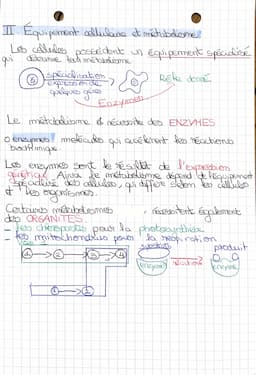 II Équipement cellulaire et métabolisme.
Les cellules possèdent un équipement spécialisé
qui détermine leur métabolisme
spécialisation
expression de
quelques gènes
Rôle donné
Enzymes
Le métabolisme nécessite des ENZYMES
enzymes: molécules qui accélèrent les réactions
biochimique.
Les enzymes sont le résultat de l'expression
génétique. Ainsi le métabolisme dépend de l'équipement
spécialisé des cellules, qui diffère selon les cellules
et les organismes.
Certains métabolismes nécessitent également
des ORGANITES.
- les chloroplastes pour la photosynthèse
- les mitochondries pour la respiration
substrat
produit
enzyme
réaction
enzyme
1 2 3 4
1 2